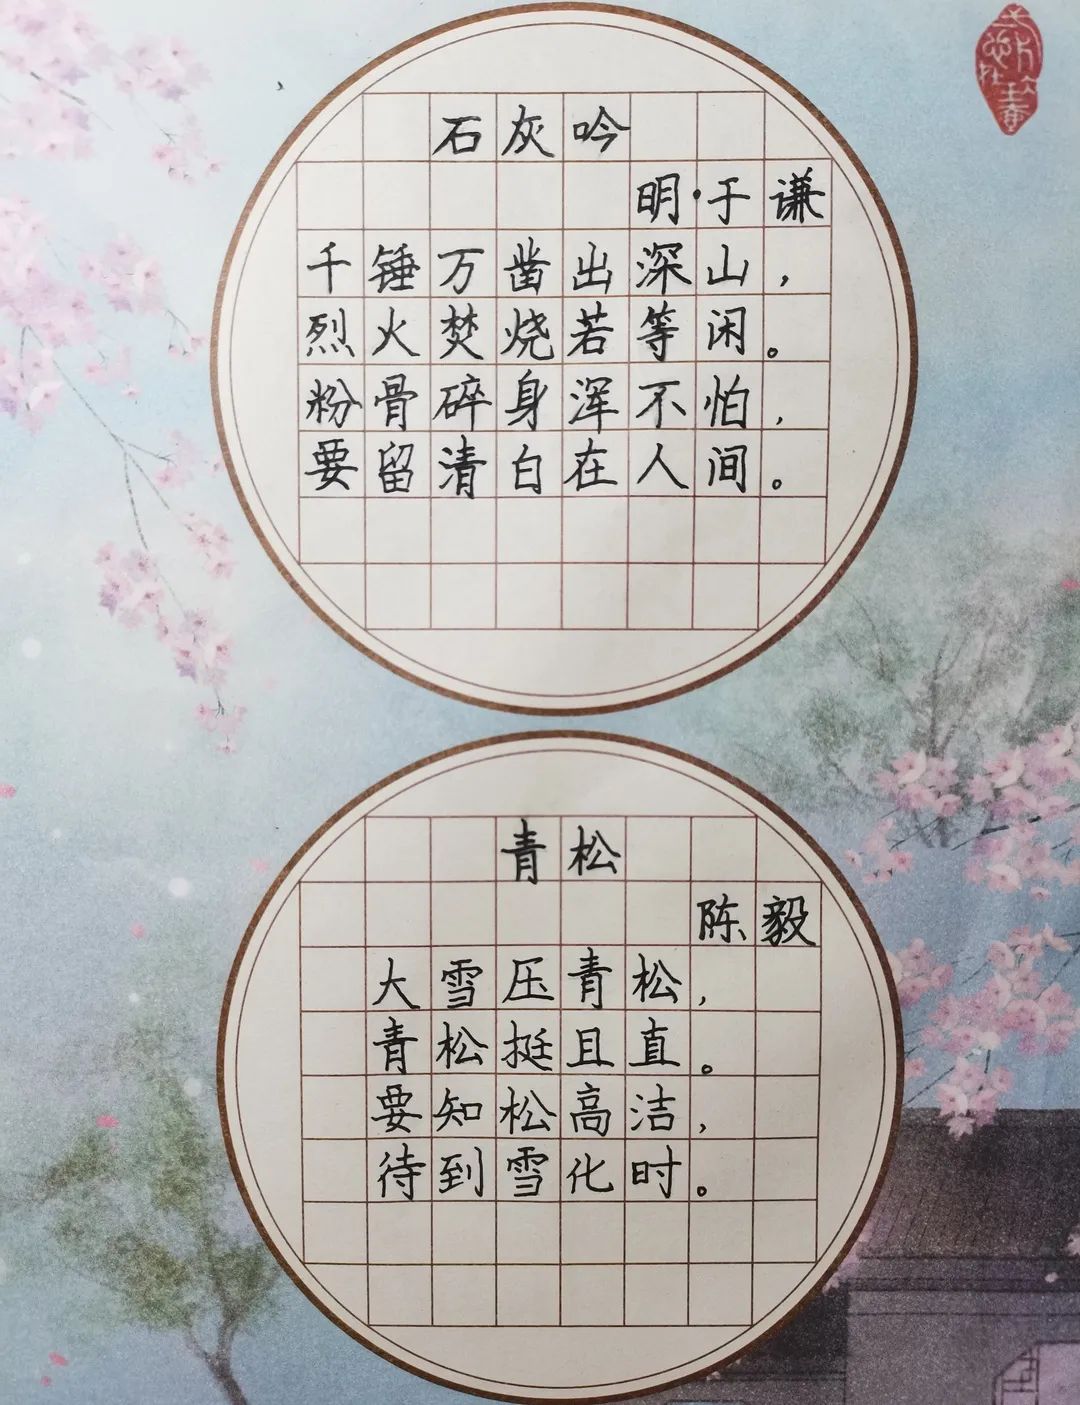 石灰吟
明·于谦
千锤万凿出深山，
烈火焚烧若等闲。
粉骨碎身浑不怕，
要留清白在人间。
青松
陈毅
大雪压青松，
青松挺且直。
要知松高洁，
待到雪化时。